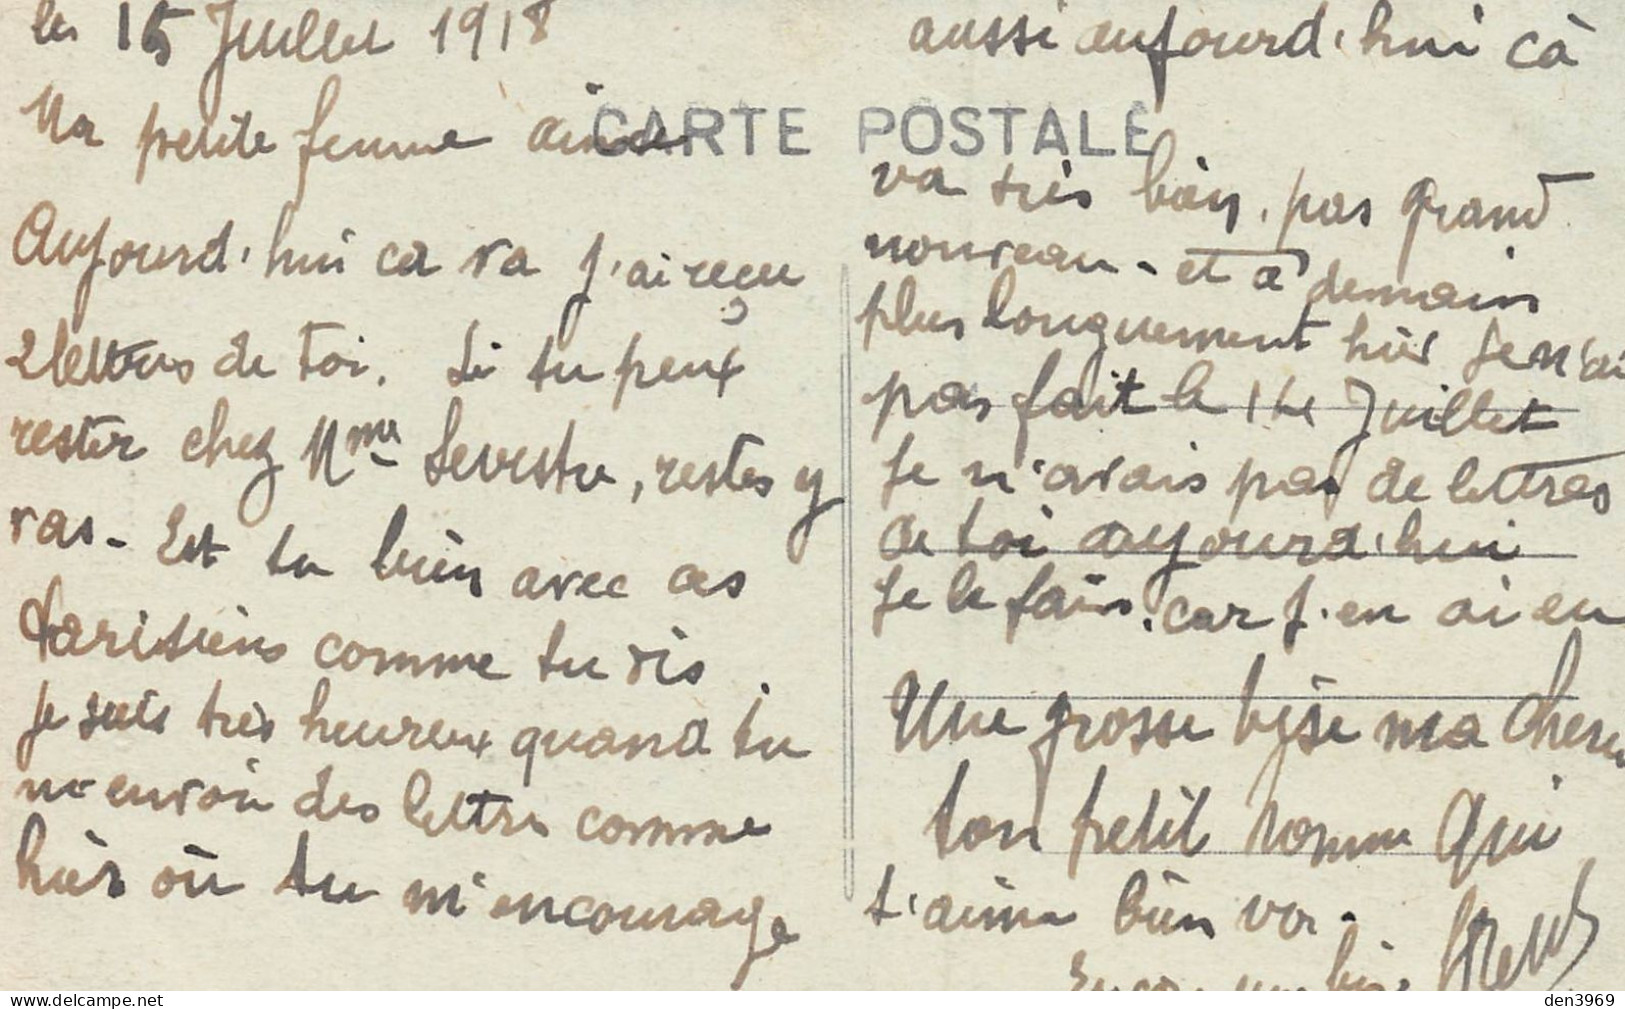 le 15 Juillet 1918
Ma petite femme aimée
CARTE POSTALE
Aujourd'hui ca va J'ai reçu
2 lettres de toi. Si tu peux
rester chez Mme Levestre, restes y
vas - Est tu bien avec ces
Parisiens comme tu dis.
Je suis très heureux quand tu
m'envoie des lettres comme
hièr où tu m'encourage
aussi aujourd'hui cà
va très bien. pas grand
nouveau - et à demain
plus longuement hièr Je n'ai
pas fait le 14 Juillet
Je n'avais pas de lettres
de toi aujourd'hui
Je le fais. car J'en ai eu
Une grosse bise ma Cherie
ton petit homme qui
t'aime bien va -
Encore une bise
den3969